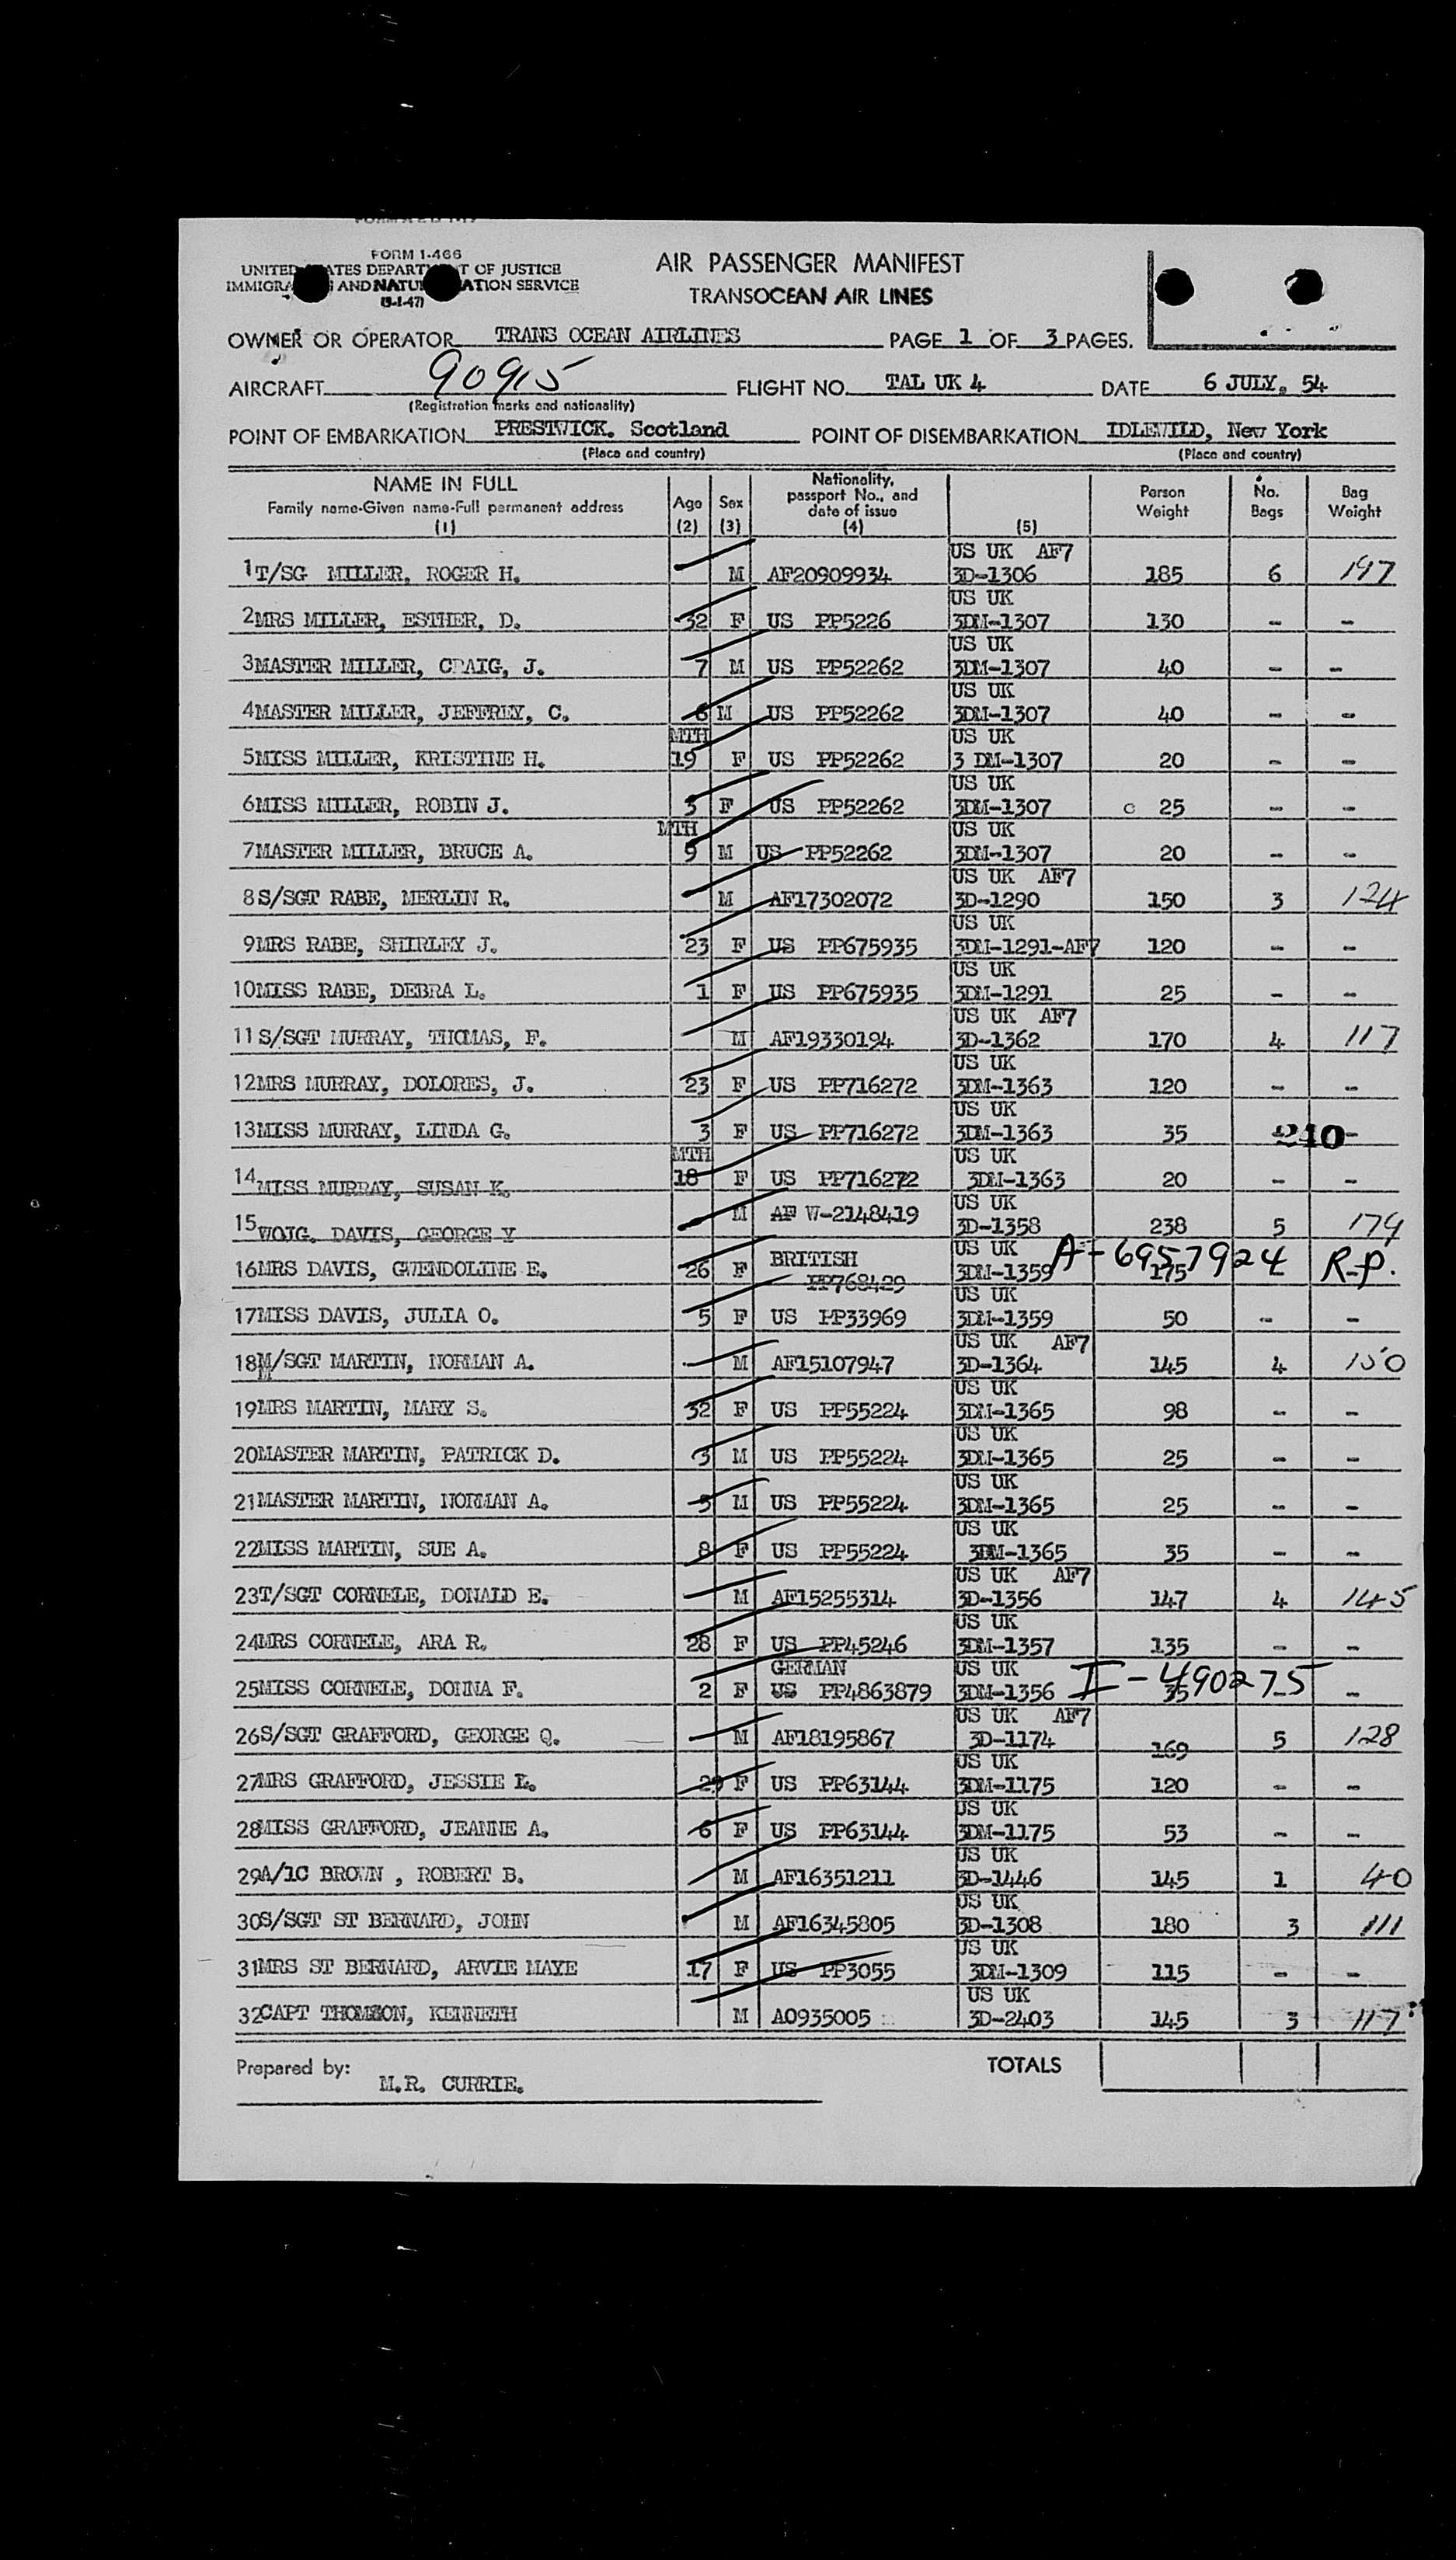 FORM I-466
UNITED STATES DEPARTMENT OF JUSTICE
IMMIGRA AND NATU ATION SERVICE
(3-1-47)
AIR PASSENGER MANIFEST
TRANSOCEAN AIR LINES
OWNER OR OPERATOR TRANS OCEAN AIRLINES PAGE 1 OF 3 PAGES.
AIRCRAFT 90915 FLIGHT NO. TAL UK 4 DATE 6 JULY. 54
(Registration marks and nationality)
POINT OF EMBARKATION PRESTWICK. Scotland POINT OF DISEMBARKATION IDLEWILD, New York
(Place and country) (Place and country)
NAME IN FULL
Family name-Given name-Full permanent address
(1)
Age
(2)
Sex
(3)
Nationality,
passport No., and
date of issue
(4)
(5)
Person
Weight
No.
Bags
Bag
Weight
US UK AF7
1 T/SG MILLER, ROGER H. M AF20909934 3D-1306 185 6 197
US UK
2 MRS MILLER, ESTHER, D. 32 F US PP5226 3DM-1307 130 - -
US UK
3 MASTER MILLER, CRAIG, J. 7 M US PP52262 3DM-1307 40 - -
US UK
4 MASTER MILLER, JEFFREY, C. 6 M US PP52262 3DM-1307 40 - -
MTH US UK
5 MISS MILLER, KRISTINE H. 19 F US PP52262 3 DM-1307 20 - -
US UK
6 MISS MILLER, ROBIN J. 3 F US PP52262 3DM-1307 c 25 - -
MTH US UK
7 MASTER MILLER, BRUCE A. 9 M US PP52262 3DM-1307 20 - -
US UK AF7
8 S/SGT RABE, MERLIN R. M AF17302072 3D-1290 150 3 124
US UK
9 MRS RABE, SHIRLEY J. 23 F US PP675935 3DM-1291-AF7 120 - -
US UK
10 MISS RABE, DEBRA L. 1 F US PP675935 3DM-1291 25 - -
US UK AF7
11 S/SGT MURRAY, THOMAS, F. M AF19330194 3D-1362 170 4 117
US UK
12 MRS MURRAY, DOLORES, J. 23 F US PP716272 3DM-1363 120 - -
US UK
13 MISS MURRAY, LINDA G. 3 F US PP716272 3DM-1363 35 240 -
MTH US UK
14 MISS MURRAY, SUSAN K. 18 F US PP716272 3DM-1363 20 - -
US UK
15 WOJG. DAVIS, GEORGE Y M AF W-2148419 3D-1358 238 5 179
BRITISH US UK A-6957924 R.P.
16 MRS DAVIS, GWENDOLINE E. 26 F PP768429 3DM-1359 175
US UK
17 MISS DAVIS, JULIA O. 5 F US PP33969 3DM-1359 50 - -
US UK AF7
18 M/SGT MARTIN, NORMAN A. M AF15107947 3D-1364 145 4 150
US UK
19 MRS MARTIN, MARY S. 32 F US PP55224 3DM-1365 98 - -
US UK
20 MASTER MARTIN, PATRICK D. 3 M US PP55224 3DM-1365 25 - -
US UK
21 MASTER MARTIN, NORMAN A. 5 M US PP55224 3DM-1365 25 - -
US UK
22 MISS MARTIN, SUE A. 8 F US PP55224 3DM-1365 35 - -
US UK AF7
23 T/SGT CORNELE, DONALD E. M AF15255314 3D-1356 147 4 145
US UK
24 MRS CORNELE, ARA R. 28 F US PP45246 3DM-1357 135 - -
GERMAN US UK I-490275
25 MISS CORNELE, DONNA F. 2 F US PP4863879 3DM-1356 35 - -
US UK AF7
26 S/SGT GRAFFORD, GEORGE Q. M AF18195867 3D-1174 169 5 128
US UK
27 MRS GRAFFORD, JESSIE L. 29 F US PP63144 3DM-1175 120 - -
US UK
28 MISS GRAFFORD, JEANNE A. 6 F US PP63144 3DM-1175 53 - -
US UK
29 A/1C BROWN , ROBERT B. M AF16351211 3D-1446 145 1 40
US UK
30 S/SGT ST BERNARD, JOHN M AF16345805 3D-1308 180 3 111
US UK
31 MRS ST BERNARD, ARVIE MAYE 17 F US PP3055 3DM-1309 115 - -
US UK
32 CAPT THOMSON, KENNETH M AO935005 3D-2403 145 3 117
Prepared by: M.R. CURRIE. TOTALS